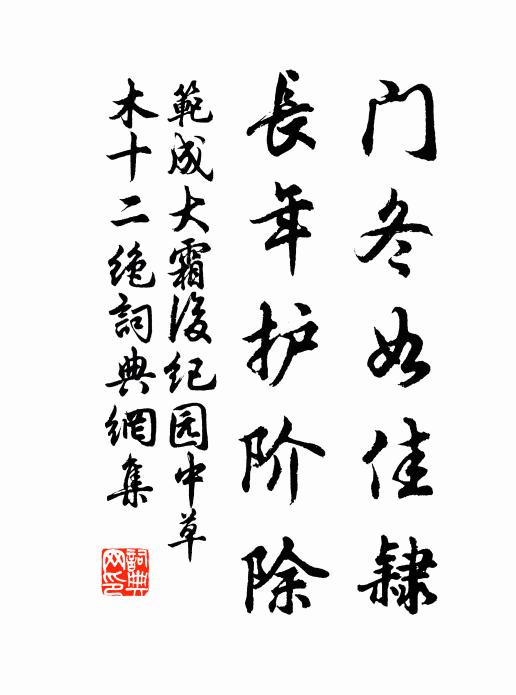 门冬如佳隸
長年护阶除
範成大霜後纪园中草
木十二绝詞典網集
詞典网印